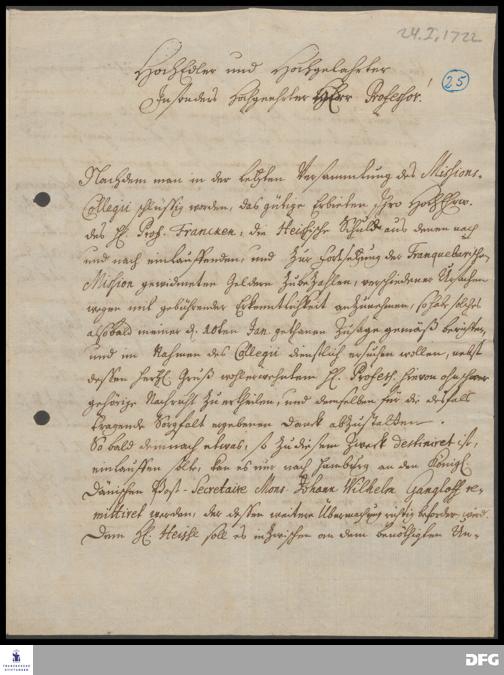 24. I. 1722
25
HochEdler und Hochgelahrter
Insonders Hochgeehrter Herr Professor!
Nachdem man in der letzten Versammlung des Missions-
Collegii schlüssig worden, das gütige Erbieten Ihro HochEhrw.
des H. Prof. Francken, die Heislische Schuld aus denen nach
und nach einlauffenden, und zur Fortsetzung der Tranquebarischen
Mission gewidmeten Geldern zu bezahlen, verschiedener Ursachen
wegen mit gebührender Erkentlichkeit anzunehmen, so habe solches
alsobald meiner d. 10ten Jan. gethanen Zusage gemäß berichten,
und im Nahmen des Collegii dienstlich ersuchen wollen, nebst
dessen herzl. Gruß wohlerwehntem H. Profess. hievon ohnschwer
gehörige Nachricht zu ertheilen, und demselben für die desfalß
tragende Sorgfalt ergebenen Danck abzustatten.
So bald demnach etwas, so zu diesem Zweck destiniret ist,
einlauffen solte, kan es nur nach Hamburg an den Königl.
Dänischen Post-Secretaire Mons. Johann Wilhelm Gangloff re-
mittiret werden, der dessen weitere Übermachung richtig besorgen wird.
Dem H. Heisle soll es inzwischen an dem benöthigten Un-
FRANCKESCHE STIFTUNGEN
DFG